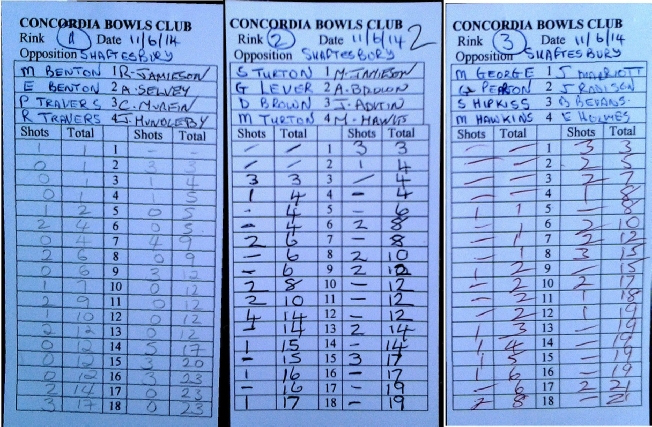 CONCORDIA BOWLS CLUB
Rink 1 Date 11/6/14
Opposition SHAFTESBURY
M BENTON 1 R-JAMIESON
E BENTON 2 A-SELVEY
P TRAVERS 3
R TRAVERS 4 J.MUNDLEBY
Shots Total Shots Total
1 1 1 - -
0 1 2 3 3
0 1 3 1 4
0 1 4 1 5
1 2 5 0 5
2 4 6 0 5
0 4 7 4 9
2 6 8 0 9
0 6 9 3 12
1 7 10 0 12
2 9 11 0 12
1 10 12 0 12
2 12 13 0 12
0 12 14 5 17
0 12 15 3 20
0 12 16 3 23
2 14 17 0 23
3 17 18 0 23
CONCORDIA BOWLS CLUB
Rink 2 Date 11/6/14 2
Opposition SHAFTESBURY
S TURTON 1 M-JAMIESON
G LEVER 2 A-BROWN
D BROWN 3
M TURTON 4 M-HAWES
Shots Total Shots Total
/ / 1 3 3
/ / 2 1 4
3 3 3 / 4
1 4 4 - 4
- 4 5 - 6
- 4 6 2 8
2 6 7 - 8
- 6 8 2 10
- 6 9 2 12
2 8 10 - 12
2 10 11 - 12
4 14 12 - 12
- 14 13 2 14
1 15 14 - 14
- 15 15 3 17
1 16 16 - 17
- 16 17 - 19
1 17 18 - 19
CONCORDIA BOWLS CLUB
Rink 3 Date 11/6/14
Opposition SHAFTESBURY
M GEORGE 1 J MARRIOTT
PEARSON 2 J RADISON
S HIPKISS 3 B BEVANS
M HAWKINS 4 E HOLMES
Shots Total Shots Total
- - 1 3 3
- - 2 2 5
- - 3 2 7
- - 4 1 8
1 1 5 - 8
- 1 6 2 10
- 1 7 2 12
- 1 8 3 15
1 2 9 - 15
- 2 10 2 17
- 2 11 1 18
- 2 12 1 19
1 3 13 - 19
1 4 14 - 19
1 5 15 - 19
1 6 16 - 19
- 6 17 2 21
2 8 18 - 21